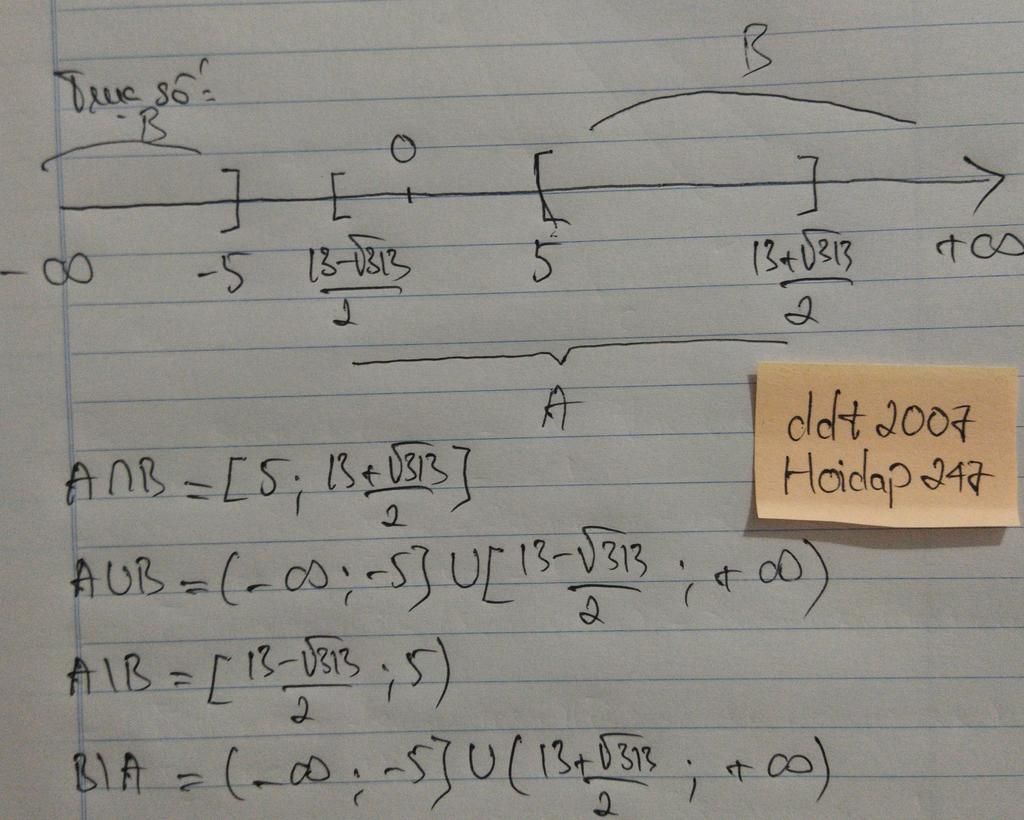 Trục số:
B
B
0
-∞ -5 \frac{13-\sqrt{313}}{2} 5 \frac{13+\sqrt{313}}{2} +∞
A
ddt 2007
Hoidap 247
A∩B = [5; \frac{13+\sqrt{313}}{2}]
A∪B = (-∞; -5] ∪ [\frac{13-\sqrt{313}}{2}; +∞)
A\B = [\frac{13-\sqrt{313}}{2}; 5)
B\A = (-∞; -5] ∪ (\frac{13+\sqrt{313}}{2}; +∞)